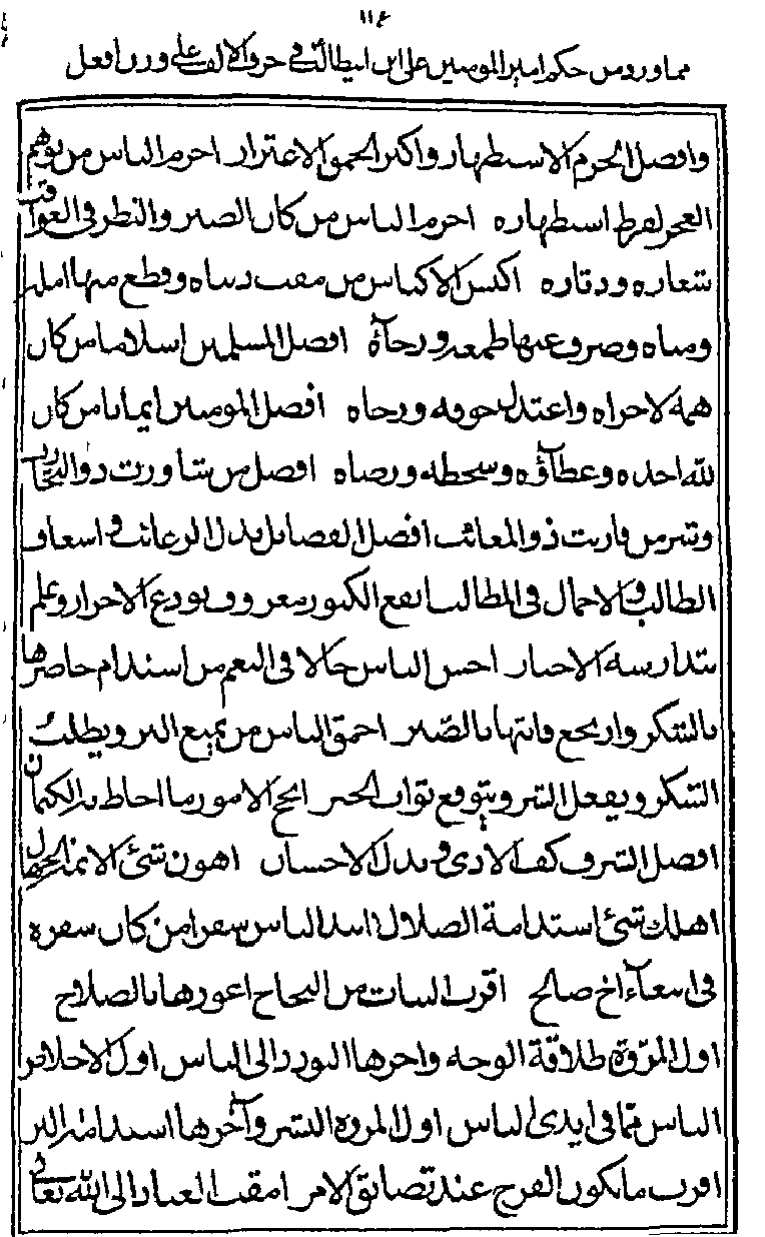 ١١٤
مما ورد من حكم امير المومنين علي ابن ابيطالب في حرف الالف علي وزن افعل
وافضل الحزم الاستظهار واكثر الحمق الاغترار احزم الناس من توهم
العجز لفرط استظهاره احزم الناس من كان الصبر والنظر في العواقب
شعاره ودثاره اكيس الاكياس من مقت دنياه وقطع منها امله
ومناه وصرف عنها طمعه ورجآه افضل المسلمين اسلاما من كان
همه لاخراه واعتدل خوفه ورجاه افضل المومنين ايمانا من كان
لله اخذه وعطآؤه وسخطه ورضاه افضل من شاورت ذوالتجارب
وشر من قارنت ذوالمعائب افضل الفضايل بذل الرغائب واسعاف
الطالب والاجمال في المطالب انفع الكنوز معروف يودع الاحرار وعلم
يتدارسه الاخيار احسن الناس حالا في النعم من استدام حاضرها
بالشكر وارتجع فائتها بالصبر احمق الناس من يمنع البر ويطلب
الشكر ويفعل الشر ويتوقع ثواب الخير انجح الامور ما احاط به الكتمان
افضل الشرف كف الاذى وبذل الاحسان اهون شئ لائمة الجهال
اهلك شئ استدامة الضلال ابعد الناس سفرا من كان سفره
في ابتغآء اخ صالح اقرب النيات من النجاح اعودها بالصلاح
اول المروة طلاقة الوجه واخرها التودد الى الناس اول الاخلاص
الياس مما في ايدي الناس اول المروة البشر وآخرها استدامة البر
اقرب مايكون الفرج عند تضايق الامر امقت العباد الى الله تعالى